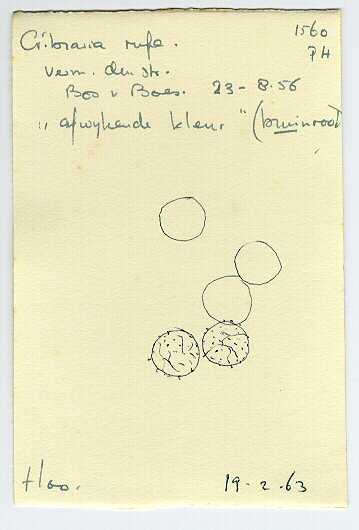 Cribraria rufa. 1560
verm. den str. PH
Bos v Boes. 23-8.56
"afwykende kleur" (bruinrood
19-2.63